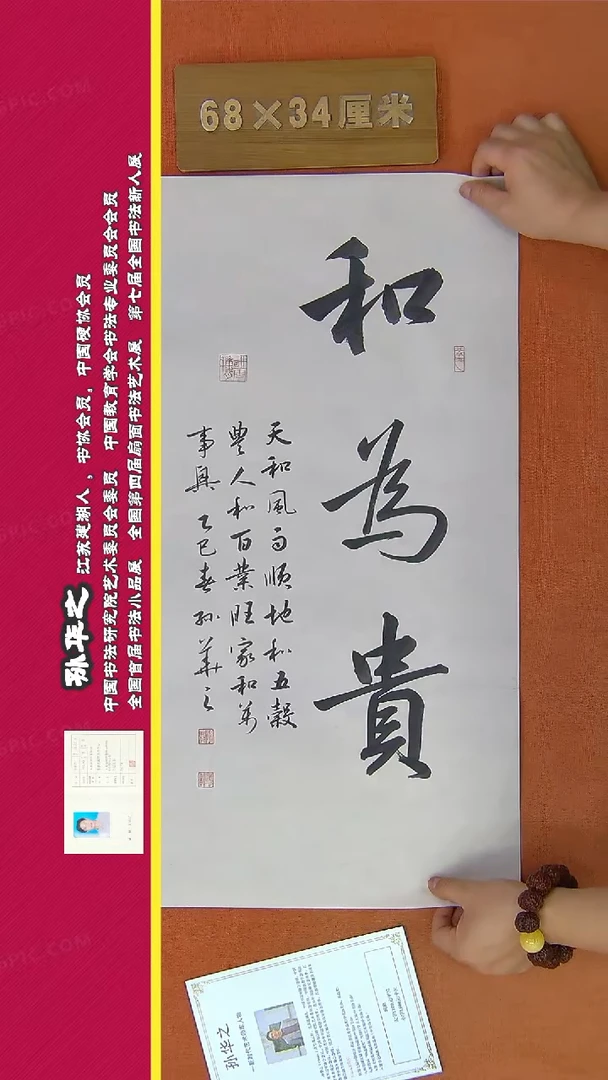 68×34厘米
和為貴
天和風雨順地和五穀
豐人和百業旺家和萬
事興 乙巳春孫華之
孙华之 江苏建湖人，书协会员，中国硬协会员
中国书法研究院艺术委员会委员 中国教育学会书法专业委员会会员
全国首届书法小品展 全国第四届扇面书法艺术展 第七届全国书法新人展
孙华之